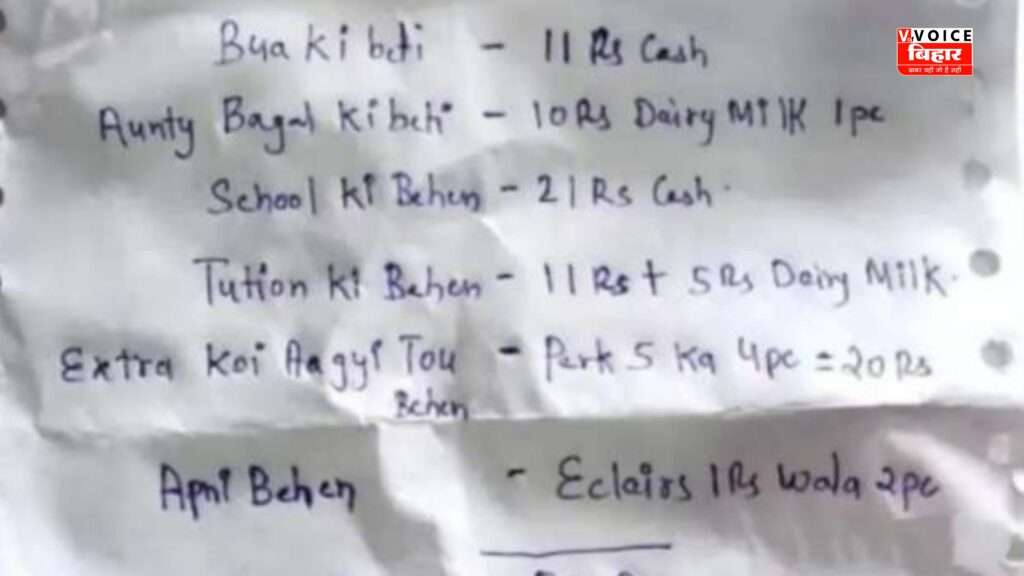 V VOICE
बिहार
Bua ki beti - 11 Rs Cash
Aunty Bagal ki beti - 10 Rs Dairy Milk 1 pc
School ki Behen - 21 Rs Cash.
Tution ki Behen - 11 Rs + 5 Rs Dairy Milk.
Extra Koi Aagyi Tou - Perk 5 ka 4pc = 20 Rs
Behen
Apni Behen - Eclairs 1 Rs wala 2pc